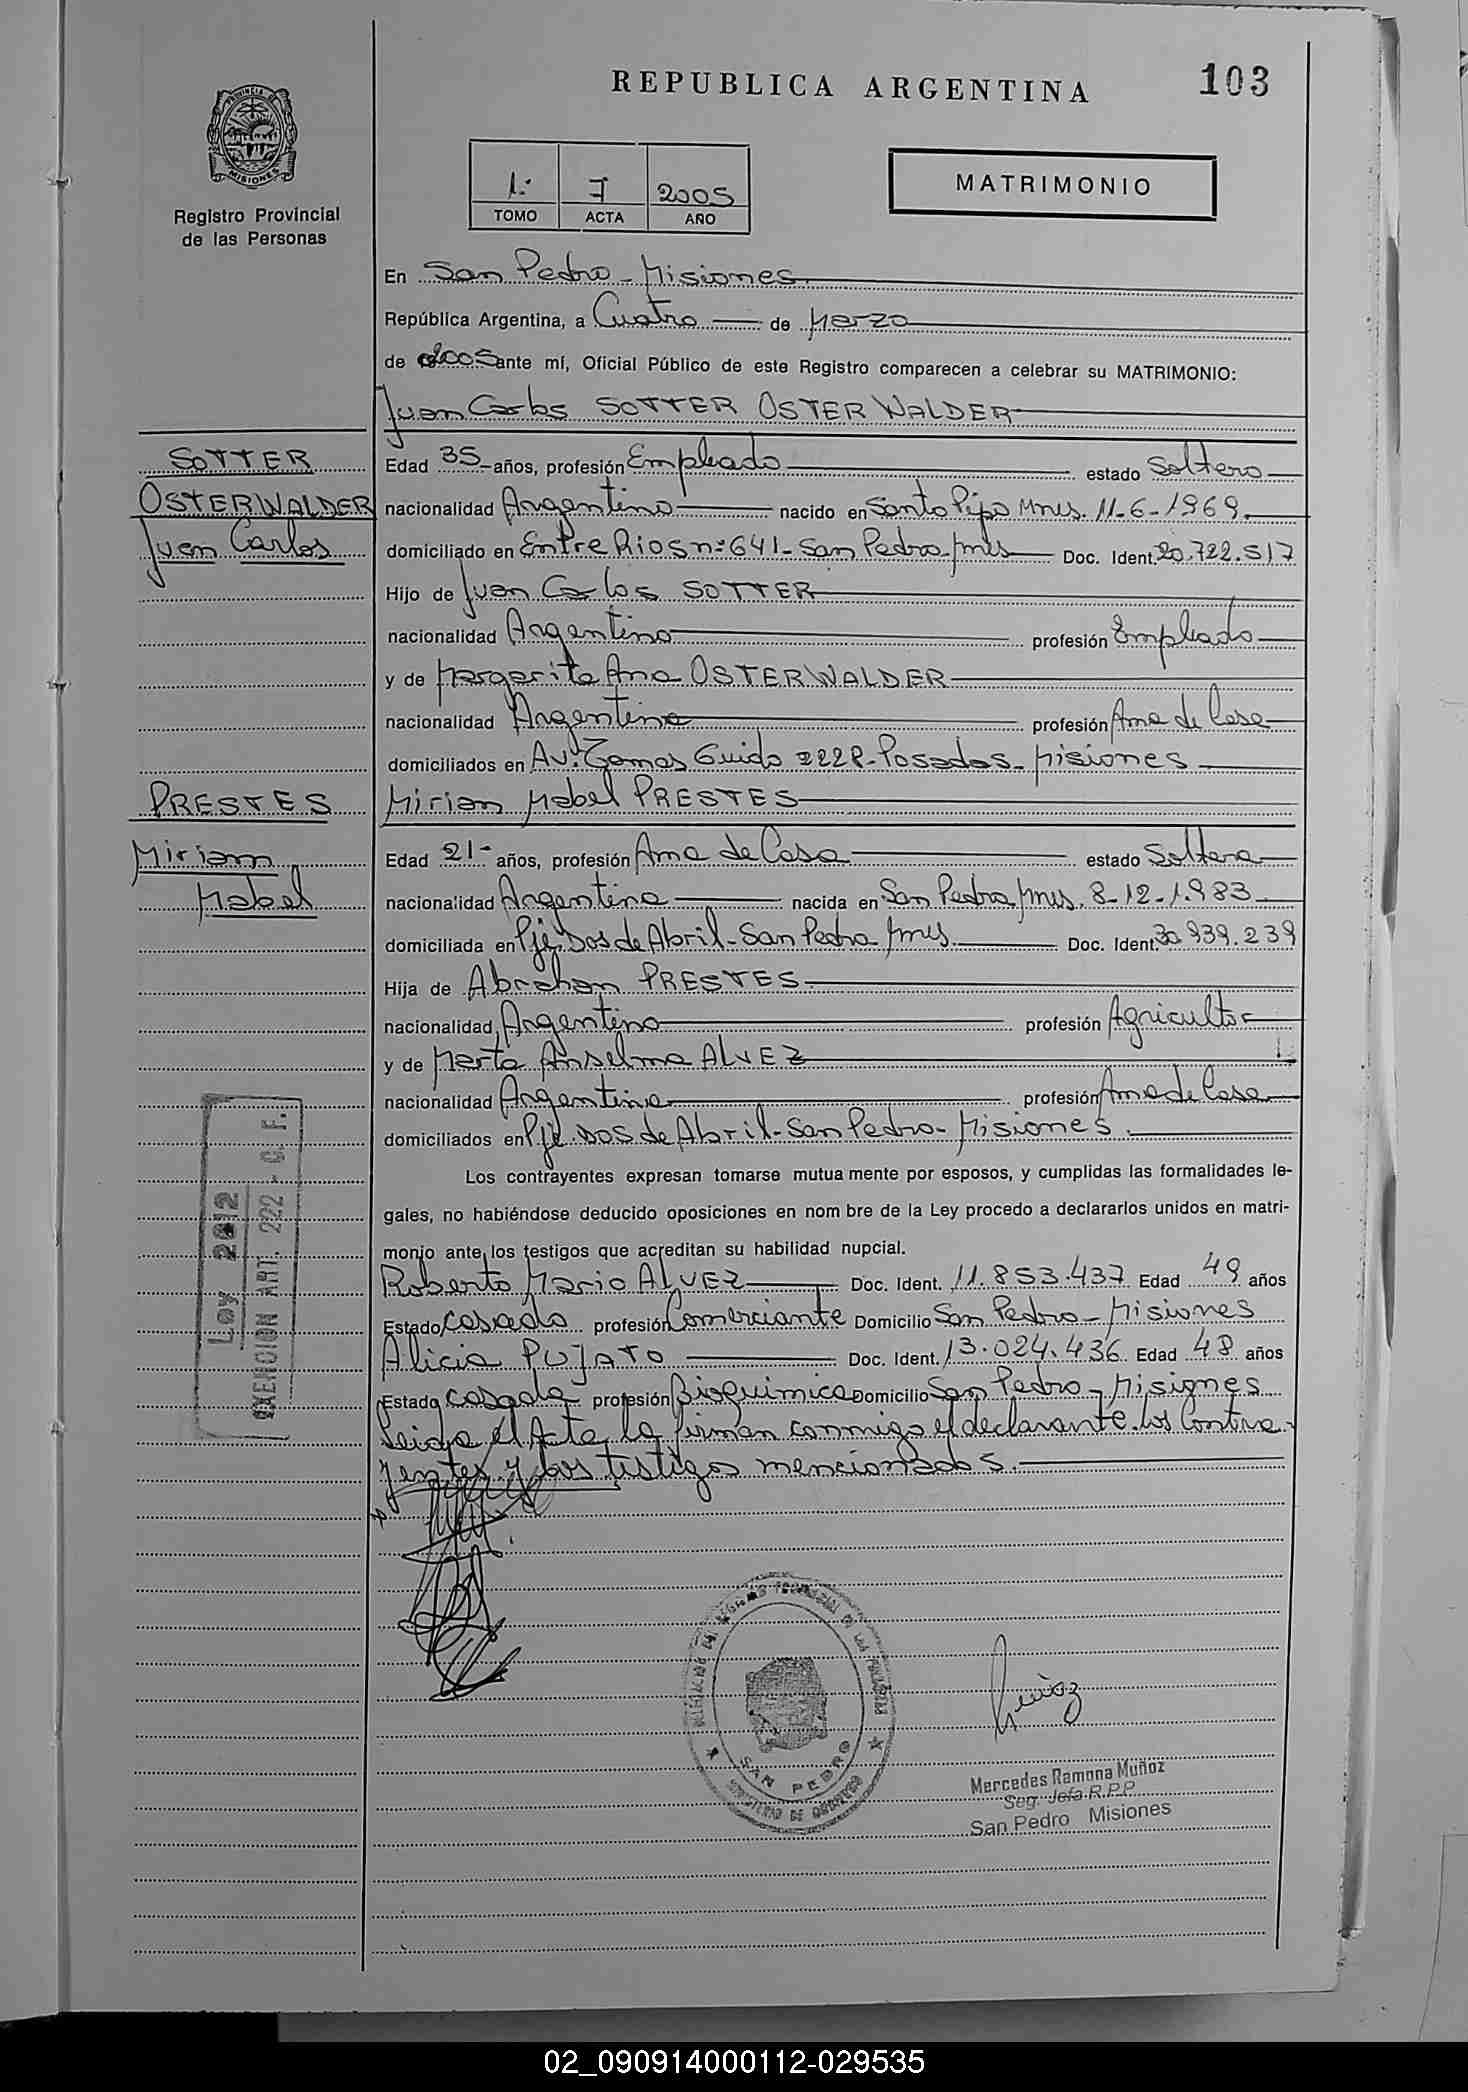 REPUBLICA ARGENTINA
103
PROVINCIA DE
MISIONES
Registro Provincial
de las Personas
1º 7 2005
TOMO ACTA AÑO
MATRIMONIO
En San Pedro - Misiones
República Argentina, a Cuatro de Marzo
de 2005 ante mí, Oficial Público de este Registro comparecen a celebrar su MATRIMONIO:
Juan Carlos SOTTER OSTERWALDER
SOTTER
OSTERWALDER
Juan Carlos
Edad 35- años, profesión Empleado estado Soltero
nacionalidad Argentino nacido en Santo Pipo Mnes. 11-6-1969.
domiciliado en Entre Rios nº 641- San Pedro-Mnes Doc. Ident. 20.722.517
Hijo de Juan Carlos SOTTER
nacionalidad Argentino profesión Empleado
y de Margarita Ana OSTERWALDER
nacionalidad Argentina profesión Ama de Casa
domiciliados en Av. Tomas Guido 2228-Posadas-Misiones
PRESTES
Miriam
Mabel
Mirian Mabel PRESTES
Edad 21- años, profesión Ama de Casa estado Soltera
nacionalidad Argentina nacida en San Pedro Mnes. 8-12-1.983
domiciliada en Pje. Dos de Abril-San Pedro Mnes. Doc. Ident. 30.939.239
Hija de Abraham PRESTES
nacionalidad Argentino profesión Agricultor
y de Marta Anselma ALVEZ
nacionalidad Argentina profesión Ama de Casa
domiciliados en Pje. Dos de Abril-San Pedro-Misiones.
Los contrayentes expresan tomarse mutua mente por esposos, y cumplidas las formalidades le-
gales, no habiéndose deducido oposiciones en nom bre de la Ley procedo a declararlos unidos en matri-
monio ante los testigos que acreditan su habilidad nupcial.
Roberto Mario ALVEZ Doc. Ident. 11.853.437 Edad 49 años
Estado casado profesión Comerciante Domicilio San Pedro-Misiones
Alicia PUJATO Doc. Ident. 13.024.436 Edad 48 años
Estado casada profesión Bioquimica Domicilio San Pedro-Misiones
Leida el Acta la firman conmigo el declarante los Contra-
yentes y los testigos mencionados.
Ley 2012
EXENCION ART. 222 - C. F.
SAN PEDRO
Muñoz
Mercedes Ramona Muñoz
Seg. Jefa R.P.P.
San Pedro Misiones
02_090914000112-029535